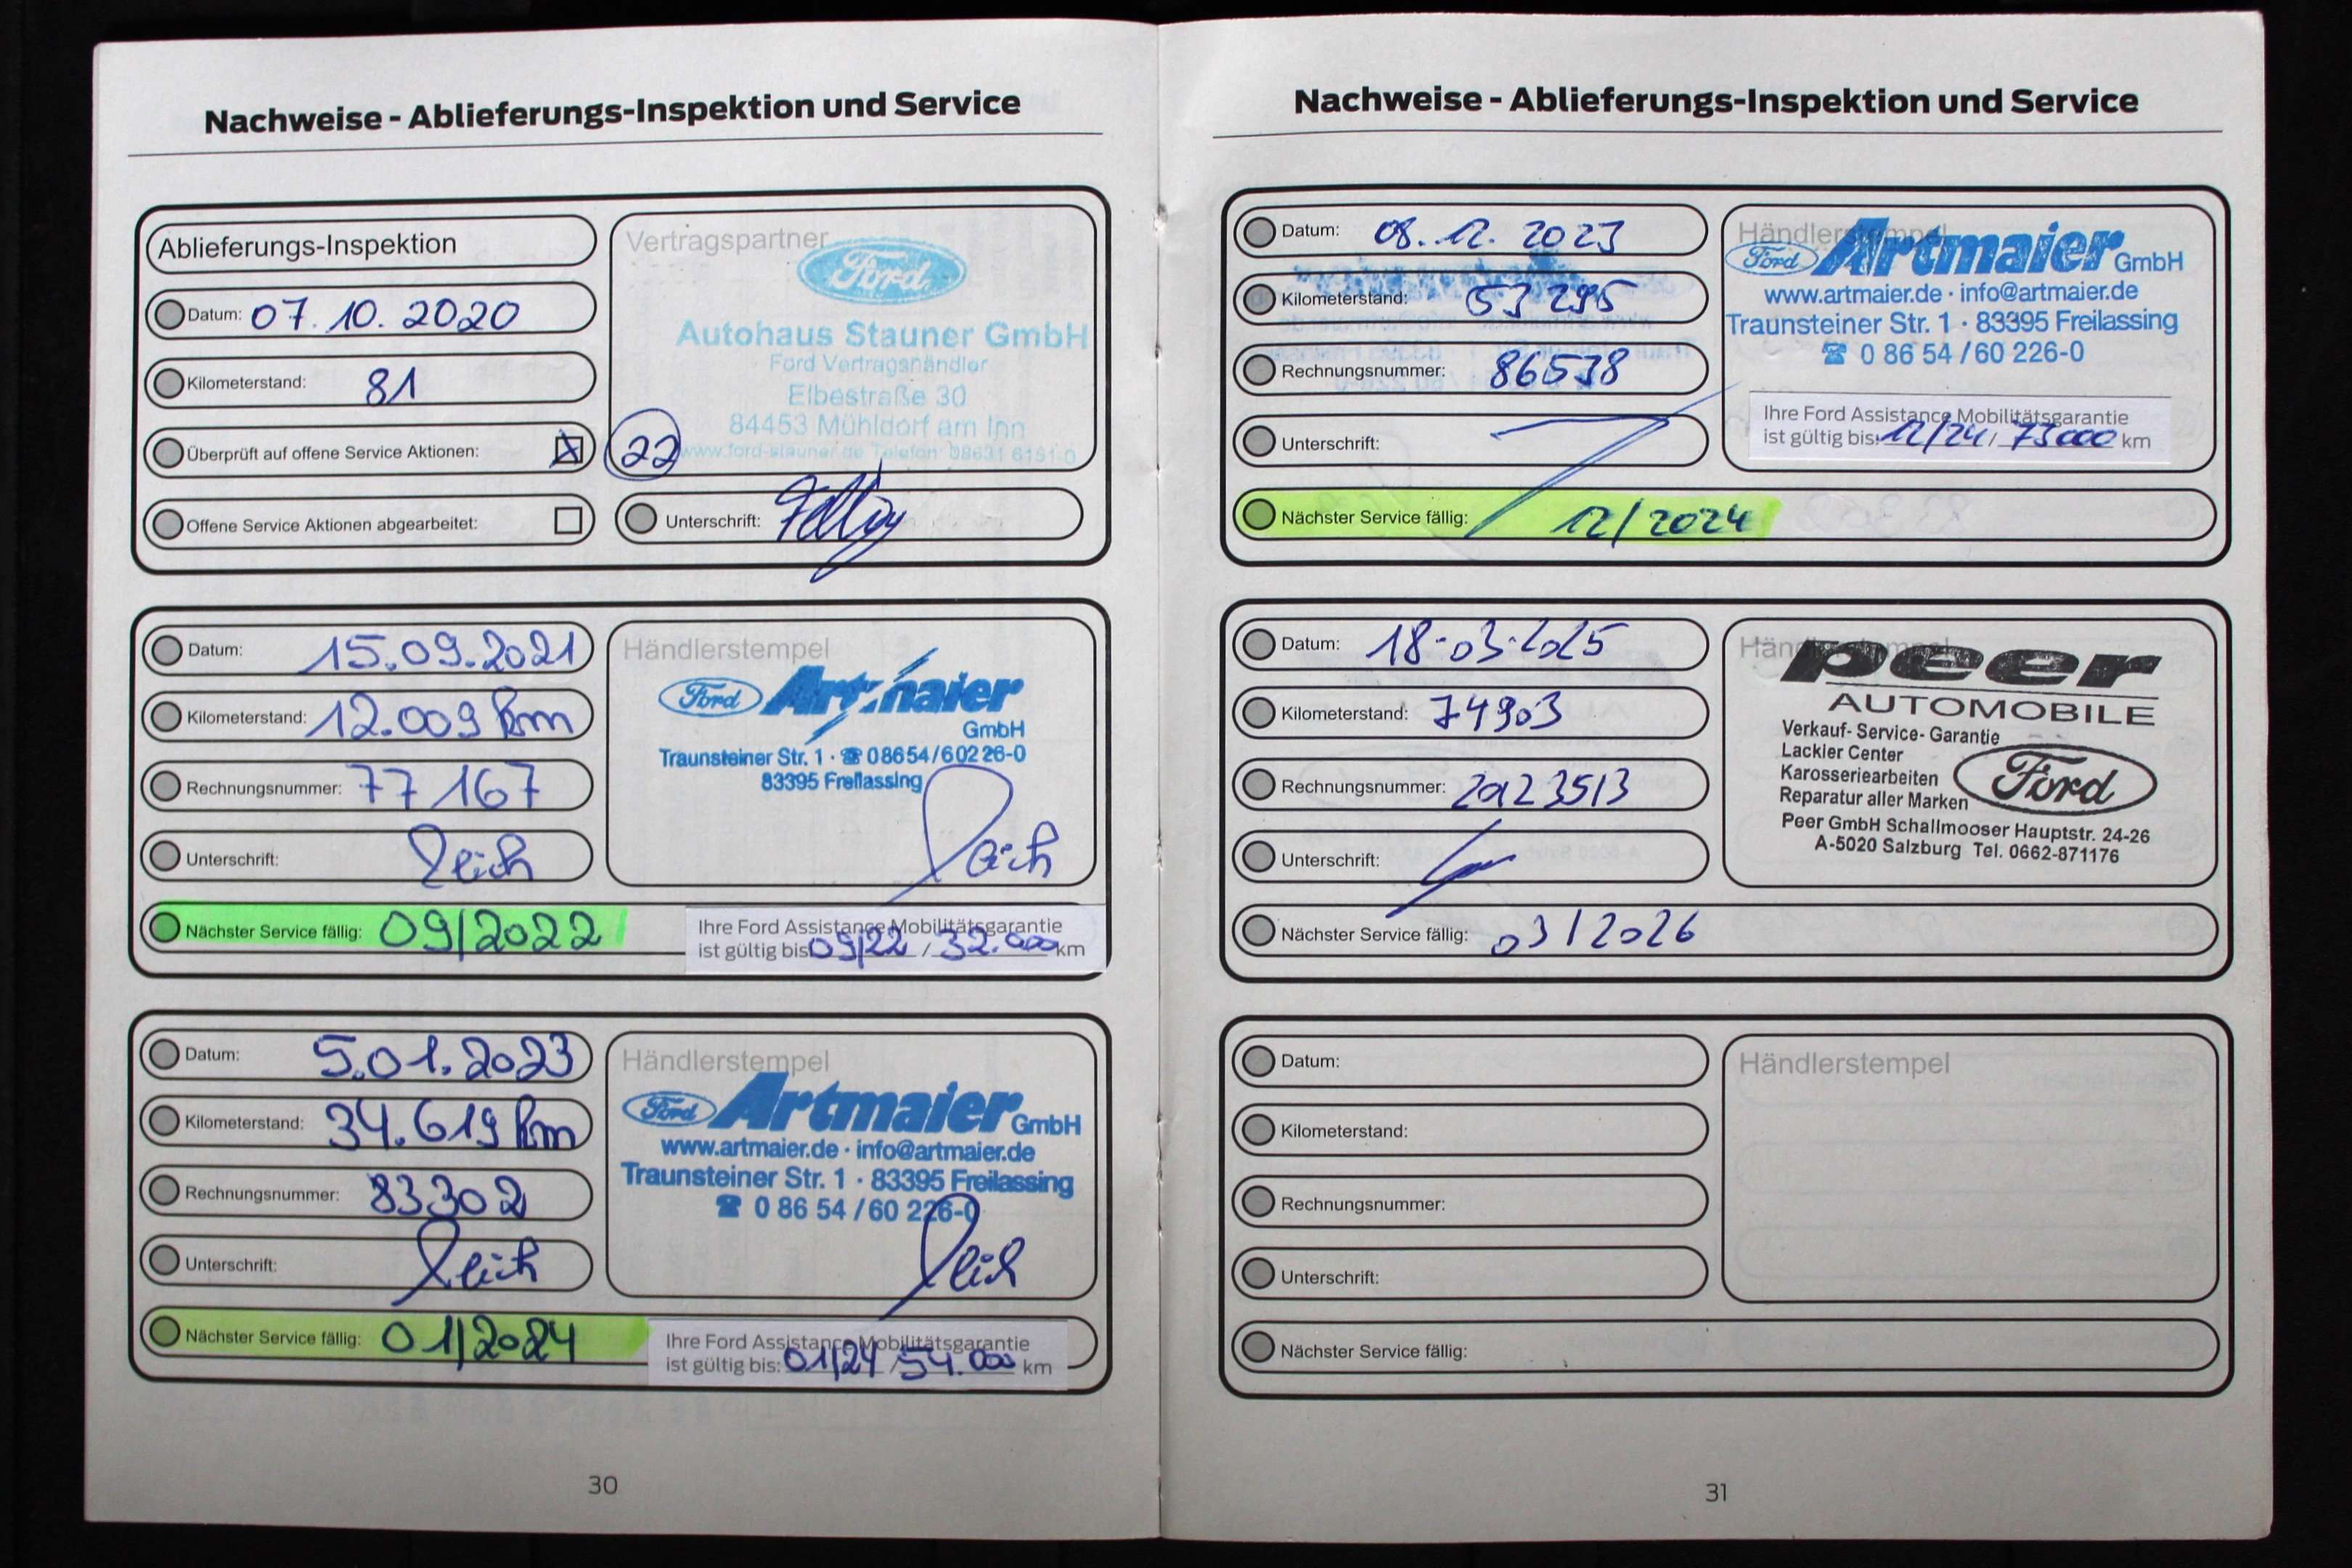 Nachweise - Ablieferungs-Inspektion und Service
Ablieferungs-Inspektion
Datum: 07.10.2020
Kilometerstand: 81
Überprüft auf offene Service Aktionen: X
Offene Service Aktionen abgearbeitet:
Vertragspartner
Ford
Autohaus Stauner GmbH
Ford Vertragshändler
Elbestraße 30
84453 Mühldorf am Inn
www.ford-stauner.de Telefon: 08631 6151-0
22
Unterschrift:
Datum: 15.09.2021
Kilometerstand: 12.009 km
Rechnungsnummer: 77167
Unterschrift:
Nächster Service fällig: 09/2022
Händlerstempel
Ford Artmaier
GmbH
Traunsteiner Str. 1 · ☎ 08654/60226-0
83395 Freilassing
Ihre Ford Assistance Mobilitätsgarantie
ist gültig bis 09/22 / 32.000 km
Datum: 5.01.2023
Kilometerstand: 34.619 km
Rechnungsnummer: 83302
Unterschrift:
Nächster Service fällig: 01/2024
Händlerstempel
Ford Artmaier GmbH
www.artmaier.de · info@artmaier.de
Traunsteiner Str. 1 · 83395 Freilassing
☎ 0 86 54 / 60 226-0
Ihre Ford Assistance Mobilitätsgarantie
ist gültig bis: 01/24 / 54.000 km
30
Nachweise - Ablieferungs-Inspektion und Service
Datum: 08.12.2023
Kilometerstand: 53295
Rechnungsnummer: 86538
Unterschrift:
Nächster Service fällig: 12/2024
Händlerstempel
Ford Artmaier GmbH
www.artmaier.de · info@artmaier.de
Traunsteiner Str. 1 · 83395 Freilassing
☎ 0 86 54 / 60 226-0
Ihre Ford Assistance Mobilitätsgarantie
ist gültig bis: 12/24 / 73000 km
Datum: 18-03-2025
Kilometerstand: 74903
Rechnungsnummer:
Unterschrift:
Nächster Service fällig: 03/2026
Händlerstempel
peer
AUTOMOBILE
Verkauf- Service- Garantie
Lackier Center
Karosseriearbeiten
Reparatur aller Marken
Ford
Peer GmbH Schallmooser Hauptstr. 24-26
A-5020 Salzburg Tel. 0662-871176
Datum:
Kilometerstand:
Rechnungsnummer:
Unterschrift:
Nächster Service fällig:
Händlerstempel
31